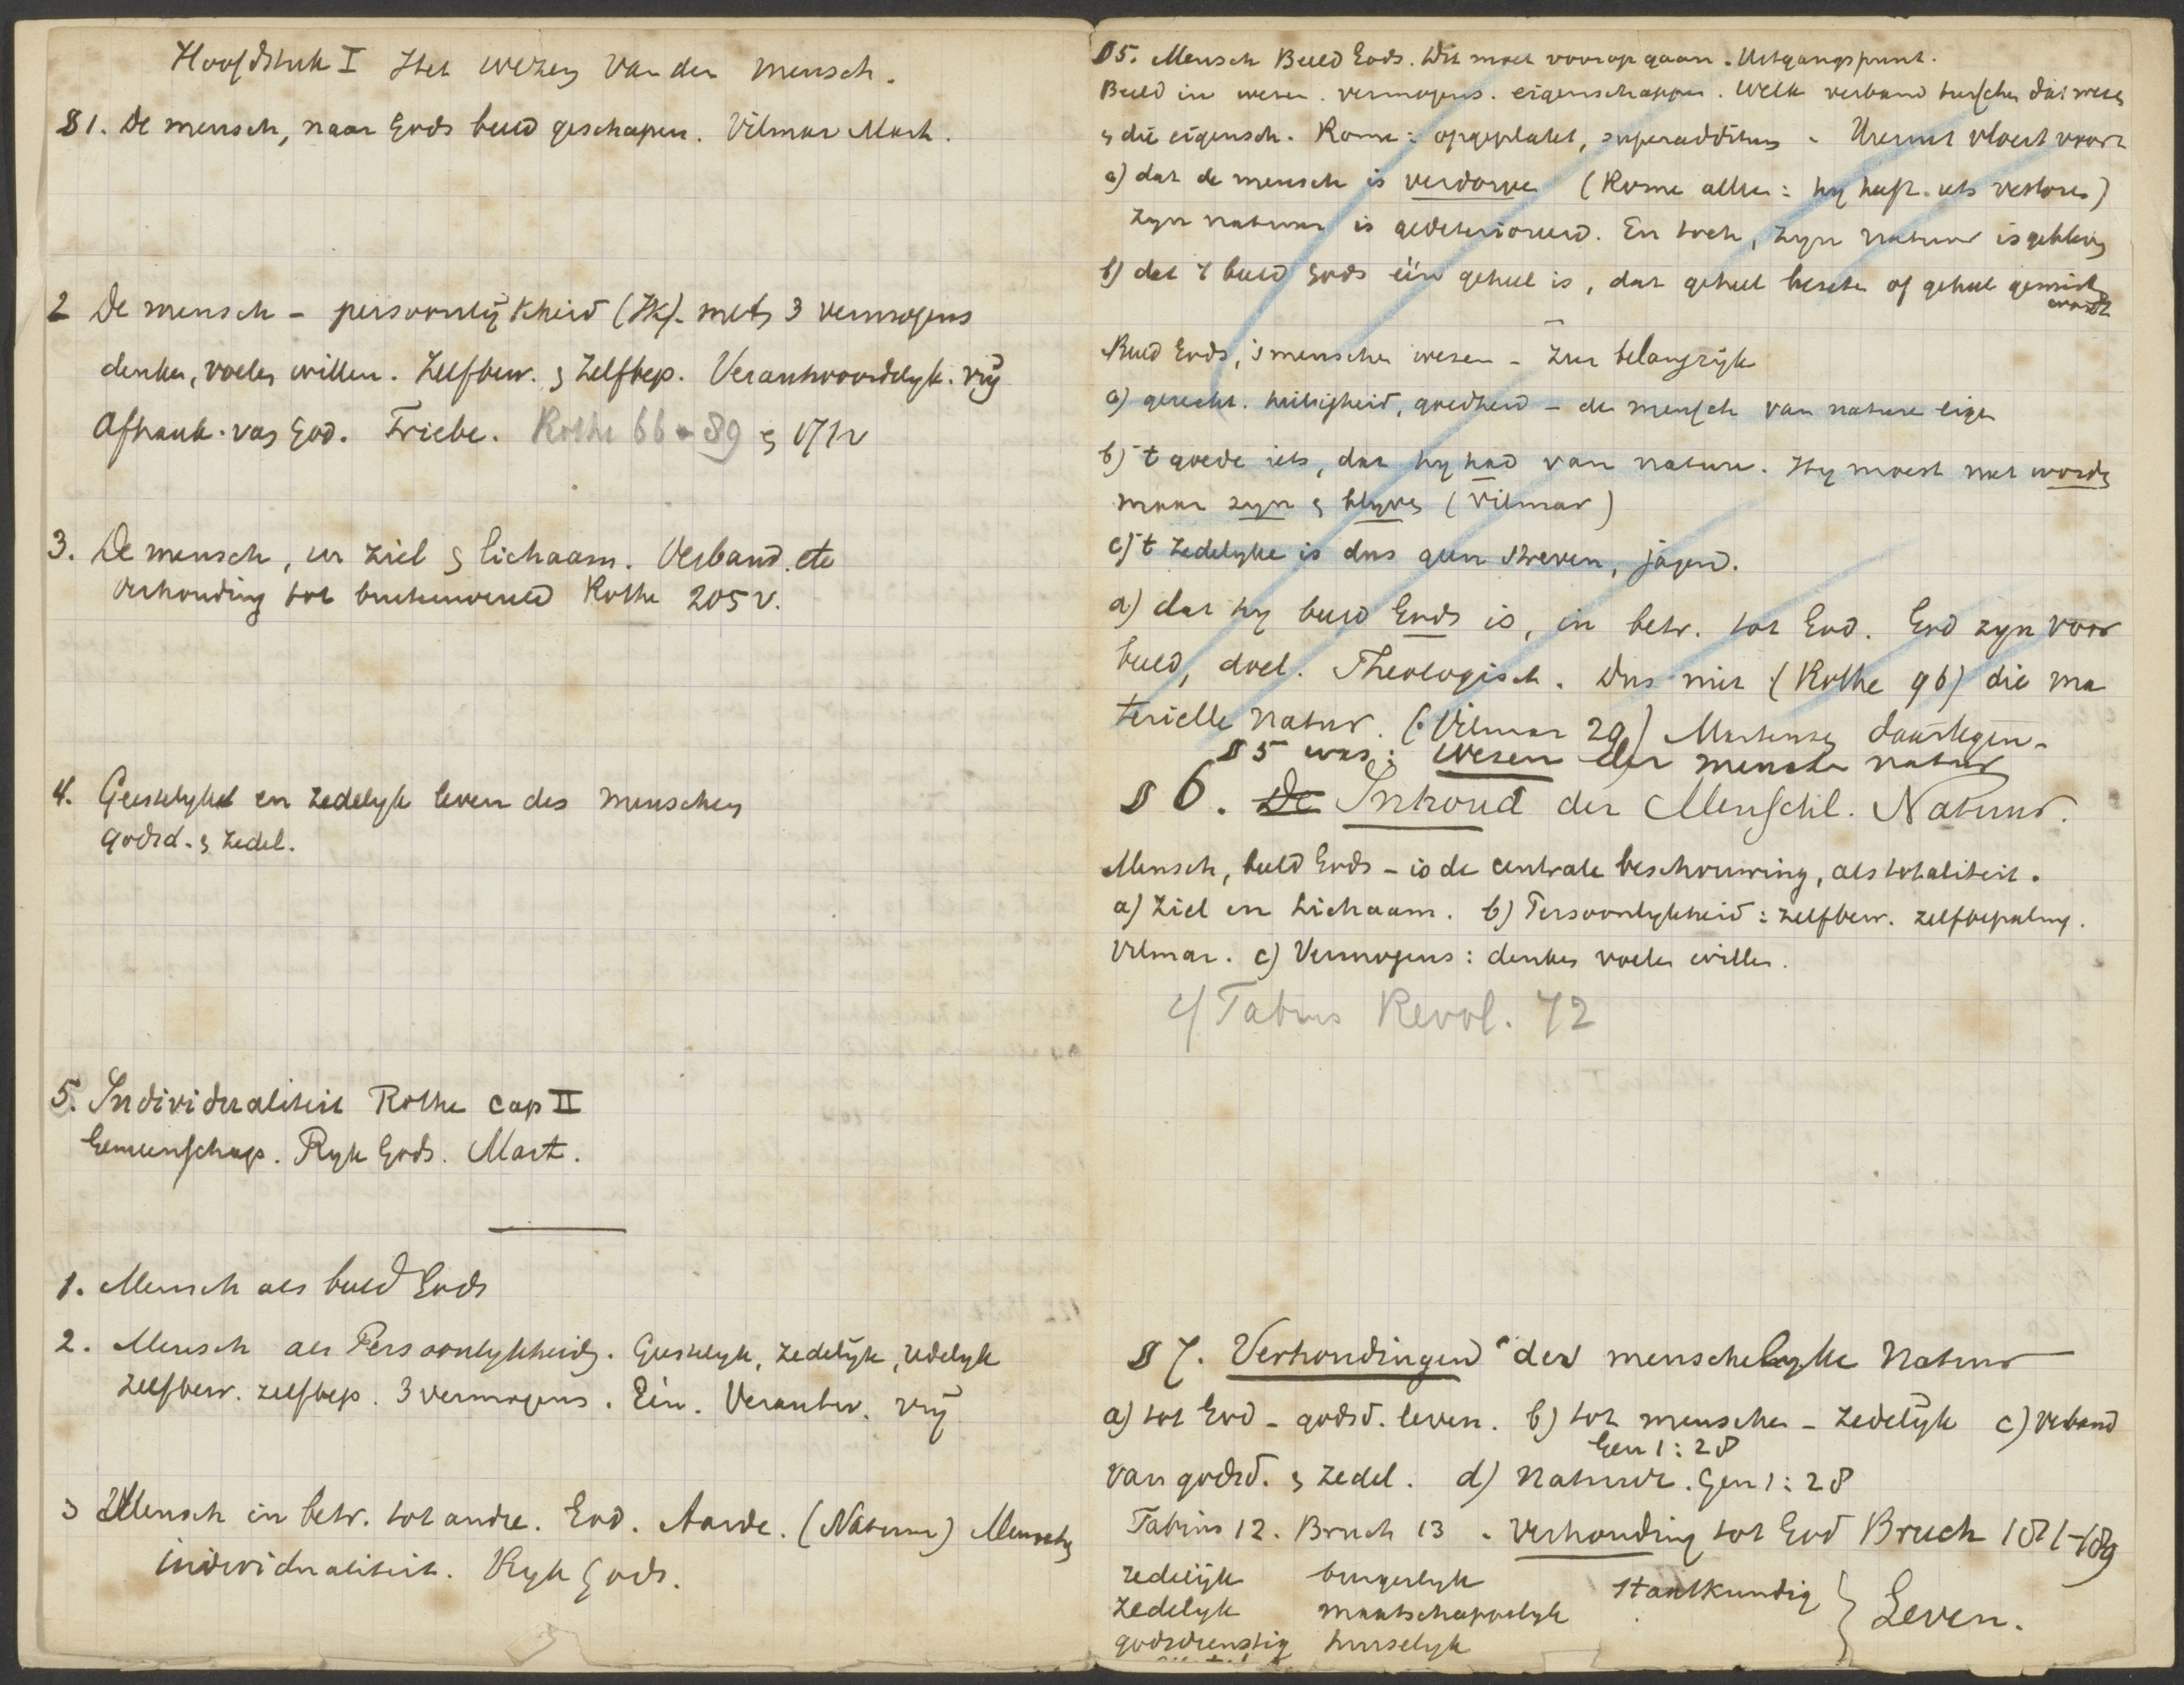 Hoofdstuk I Het wezen van den mensch.
§1. De mensch, naar Gods beeld geschapen. Vilmar Mart.
2 De mensch - persoonlijkheid (Ik). met 3 vermogens
denken, voelen willen. Zelfbew. & Zelfbep. Verantwoordelyk. vrij
Afhank. van God. Triebe. Rothe 66-89 & 171v
3. De mensch, in ziel & lichaam. Verband. etc
verhouding tot buitenwereld Rothe 205 v.
4. Geestelyk en zedelyk leven des menschen
godsd. & zedel.
5. Individualiteit Rothe cap II
Gemeenschap. Ryk Gods. Mart.
1. Mensch als beeld Gods
2. Mensch als Persoonlykheid. Geestelyk, zedelyk, redelyk
zelfbew. zelfbep. 3 vermogens. Eén. Verantw. vrij
3 Mensch in betr. tot andre. God. Aarde. (Natuur) Menschen
individualiteit. Ryk Gods.
§5. Mensch Beeld Gods. Dit moet voorop gaan. Uitgangspunt.
Beeld in wezen. vermogens. eigenschappen. Welk verband tusschen dat wezen
& die eigensch. Rome: opgeplakt, superadditum. Hieruit vloeit voort
a) dat de mensch is verdorven (Rome alleen: hy heeft iets verloren)
Zyn natuur is gedeterioreerd. En toch, zyn natuur is gebleven
b) dat 't beeld Gods één geheel is, dat geheel bezeten of geheel gemist
wordt
Beeld Gods, 's menschen wezen - zeer belangryk
a) gerecht. heiligheid, goedheid - den mensch van nature eigen
b) 't goede iets, dat hy had van nature. Hy moest niet worden
maar zyn & blyven (Vilmar)
c) 't zedelyke is dus geen streven, jagend.
a) dat hy beeld Gods is, in betr. tot God. God zyn voor
beeld, doel. Theologisch. Dus niet (Rothe 96) die ma
terielle Natur. (Vilmar 29) Martensen daartegen.
§5 was: wezen der mensch. natuur
§6. De Inhoud der Menschl. Natuur.
Mensch, beeld Gods - is de centrale beschouwing, als totaliteit.
a) Ziel en Lichaam. b) Persoonlykheid: zelfbew. zelfbepaling.
Vilmar. c) Vermogens: denken voelen willen.
cf Fabius Revol. 72
§7. Verhoudingen der menschelyke Natuur
a) tot God - godsd. leven. b) tot menschen - zedelyk c) verband
Gen 1:28
van godsd. & zedel. d) Natuur. Gen 1:28
Fabius 12. Bruch 13. Verhouding tot God Bruch 181-189
redelijk burgerlyk staatkundig
zedelyk maatschappelyk } Leven.
godsdienstig huiselyk